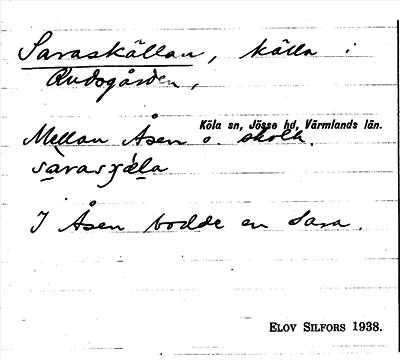 Saraskällan, källa i
Rudsgården,
Köla sn, Jösse hd, Värmlands län.
Mellan Åsen o. skola.
I Åsen bodde en Sara.
ELOV SILFORS 1938.